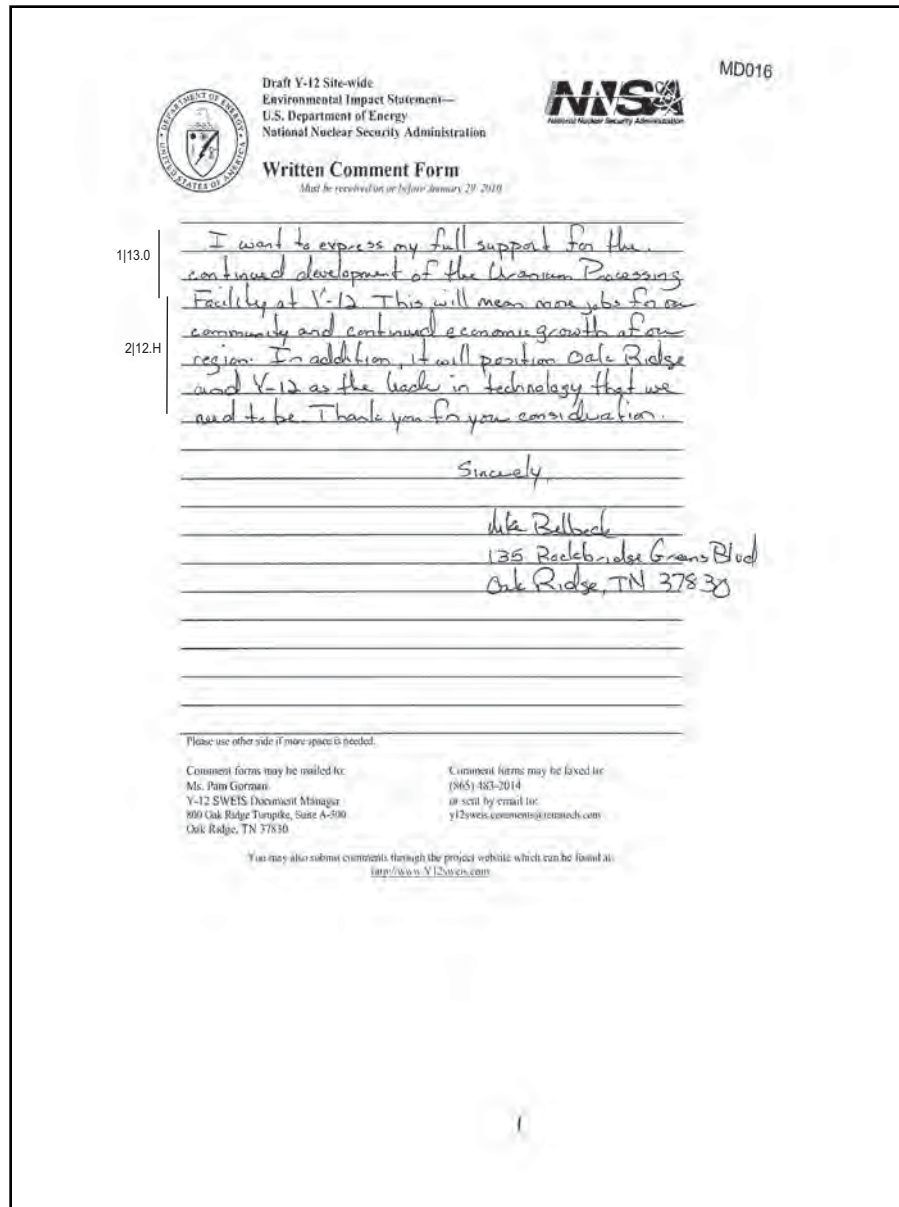 MD016
Draft Y-12 Site-wide
Environmental Impact Statement—
U.S. Department of Energy
National Nuclear Security Administration
DEPARTMENT OF ENERGY
UNITED STATES OF AMERICA
NNSA
National Nuclear Security Administration
Written Comment Form
Must be received on or before January 29, 2010
1|13.0
I want to express my full support for the
continued development of the Uranium Processing
Facility at Y-12. This will mean more jobs for our
2|12.H
community and continued economic growth of our
region. In addition, it will position Oak Ridge
and Y-12 as the leader in technology that we
need to be. Thank you for your consideration.
Sincerely,
Mike Belbeck
135 Rockbridge Greens Blvd
Oak Ridge, TN 37830
Please use other side if more space is needed.
Comment forms may be mailed to:
Ms. Pam Gorman
Y-12 SWEIS Document Manager
800 Oak Ridge Turnpike, Suite A-500
Oak Ridge, TN 37830
Comment forms may be faxed to:
(865) 483-2014
or sent by email to:
y12sweis.comments@tetratech.com
You may also submit comments through the project website which can be found at:
http://www.Y12sweis.com
1